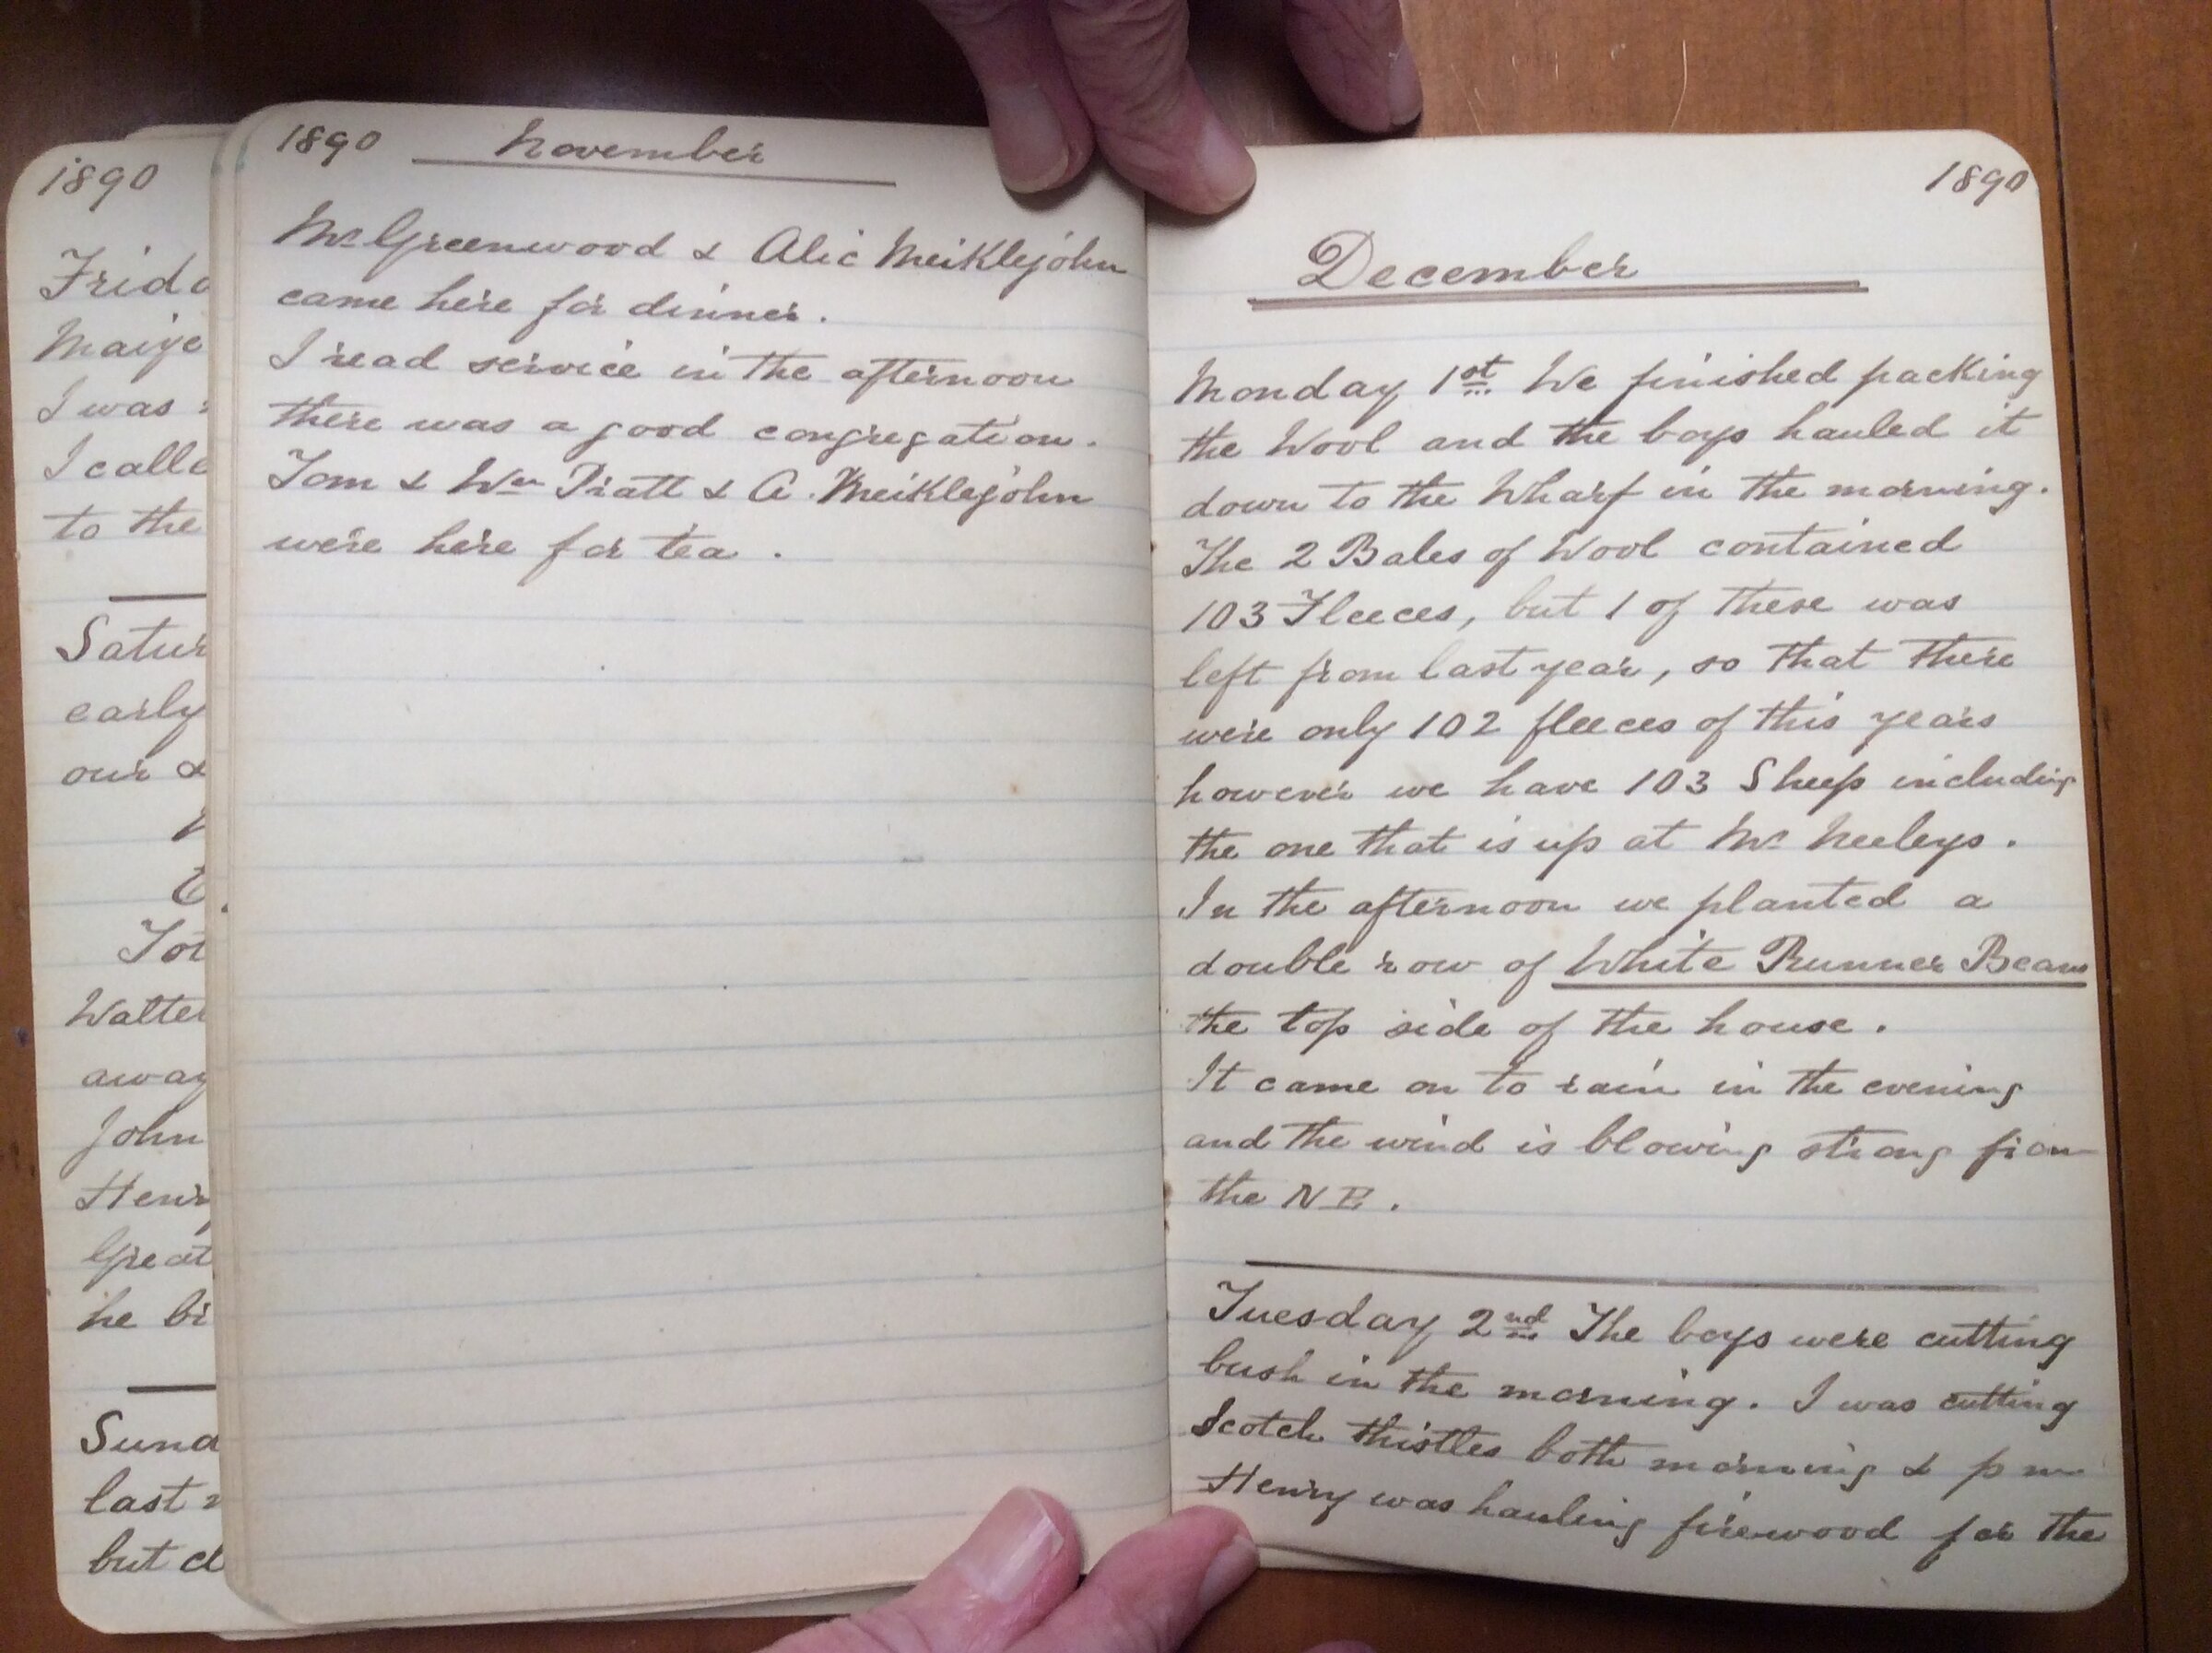 1890
Frida
I was
I calle
to the
Satur
early
our &
Tot
Walter
away
John
Henry
Great
he br
Sund
last
but d
1890 November
Mr Greenwood & Alic Meiklejohn
came here for dinner.
I read service in the afternoon
there was a good congregation.
Tom & Wm Pratt & A. Meiklejohn
were here for tea.
1890
December
Monday 1st We finished packing
the Wool and the boys hauled it
down to the Wharf in the morning.
The 2 Bales of Wool contained
103 Fleeces, but 1 of these was
left from last year, so that there
were only 102 fleeces of this years
however we have 103 Sheep including
the one that is up at Mr Neeleys.
In the afternoon we planted a
double row of White Runner Beans
the top side of the house.
It came on to rain in the evening
and the wind is blowing strong from
the NE.
Tuesday 2nd The boys were cutting
bush in the morning. I was cutting
Scotch thistles both morning & pm
Henry was hauling firewood for the